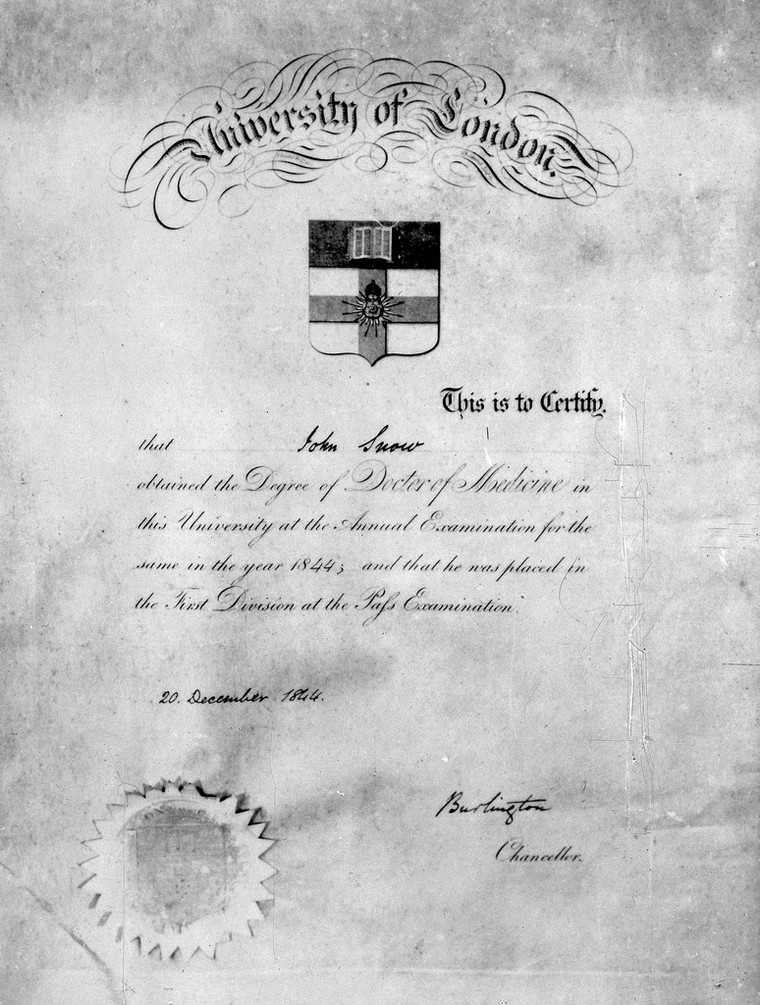 University of London.
This is to Certify.
that John Snow
obtained the Degree of Doctor of Medicine in
this University at the Annual Examination for the
same in the year 1844; and that he was placed in
the First Division at the Paſs Examination.
20. December 1844.
Burlington
Chancellor.